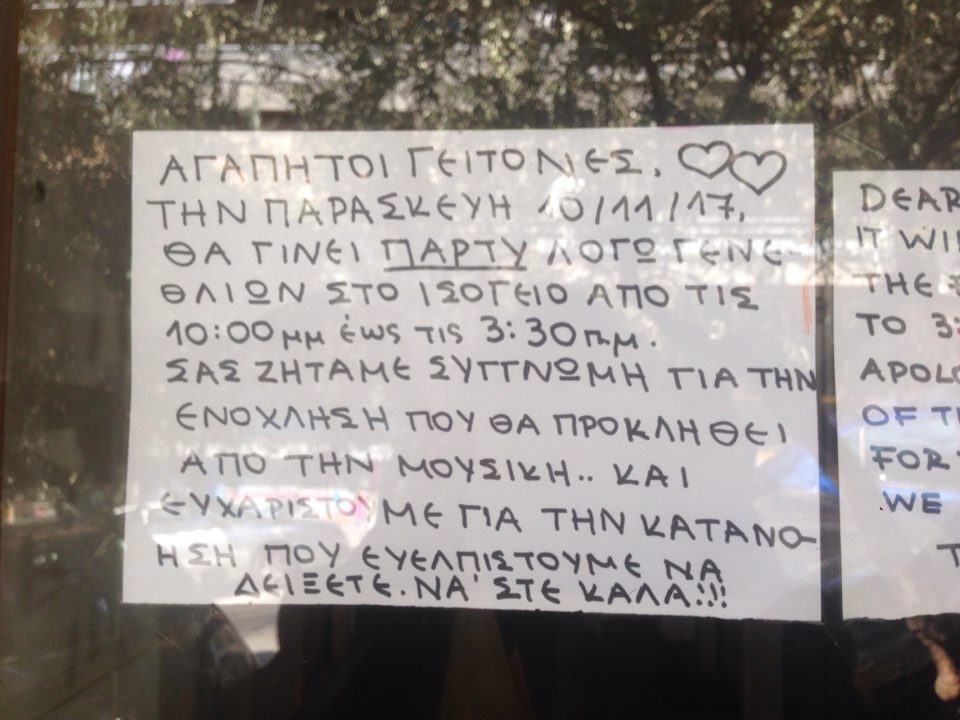 ΑΓΑΠΗΤΟΙ ΓΕΙΤΟΝΕΣ,
ΤΗΝ ΠΑΡΑΣΚΕΥΗ 10/11/17,
ΘΑ ΓΙΝΕΙ ΠΑΡΤΥ ΛΟΓΩ ΓΕΝΕ-
ΘΛΙΩΝ ΣΤΟ ΙΣΟΓΕΙΟ ΑΠΟ ΤΙΣ
10:00 μμ έως τις 3:30 π.μ.
ΣΑΣ ΖΗΤΑΜΕ ΣΥΓΓΝΩΜΗ ΓΙΑ ΤΗΝ
ΕΝΟΧΛΗΣΗ ΠΟΥ ΘΑ ΠΡΟΚΛΗΘΕΙ
ΑΠΟ ΤΗΝ ΜΟΥΣΙΚΗ.. ΚΑΙ
ΕΥΧΑΡΙΣΤΟΥΜΕ ΓΙΑ ΤΗΝ ΚΑΤΑΝΟ-
ΗΣΗ ΠΟΥ ΕΥΕΛΠΙΣΤΟΥΜΕ ΝΑ
ΔΕΙΞΕΤΕ. ΝΑ 'ΣΤΕ ΚΑΛΑ!!!
DEAR
IT
THE
TO
OF
FOR
WE